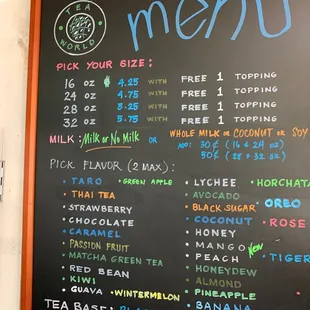 TEA
WORLD
menu
PICK YOUR SIZE:
16 oz $ 4.25 WITH FREE 1 TOPPING
24 oz 4.75 WITH FREE 1 TOPPING
28 oz 5.25 WITH FREE 1 TOPPING
32 oz 5.75 WITH FREE 1 TOPPING
MILK: Milk or No Milk OR WHOLE MILK OR COCONUT OR SOY
ADD: 30¢ (16 & 24 oz)
50¢ (28 & 32 oz)
PICK FLAVOR (2 MAX):
• TARO • GREEN APPLE
• THAI TEA
• STRAWBERRY
• CHOCOLATE
• CARAMEL
• PASSION FRUIT
• MATCHA GREEN TEA
• RED BEAN
• KIWI
• GUAVA • WINTERMELON
• LYCHEE
• AVOCADO
• BLACK SUGAR
• COCONUT
• HONEY
• MANGO New
• PEACH
• HONEYDEW
• ALMOND
• PINEAPPLE
• BANANA
• HORCHATA
OREO
• ROSE
• TIGER
TEA BASE: